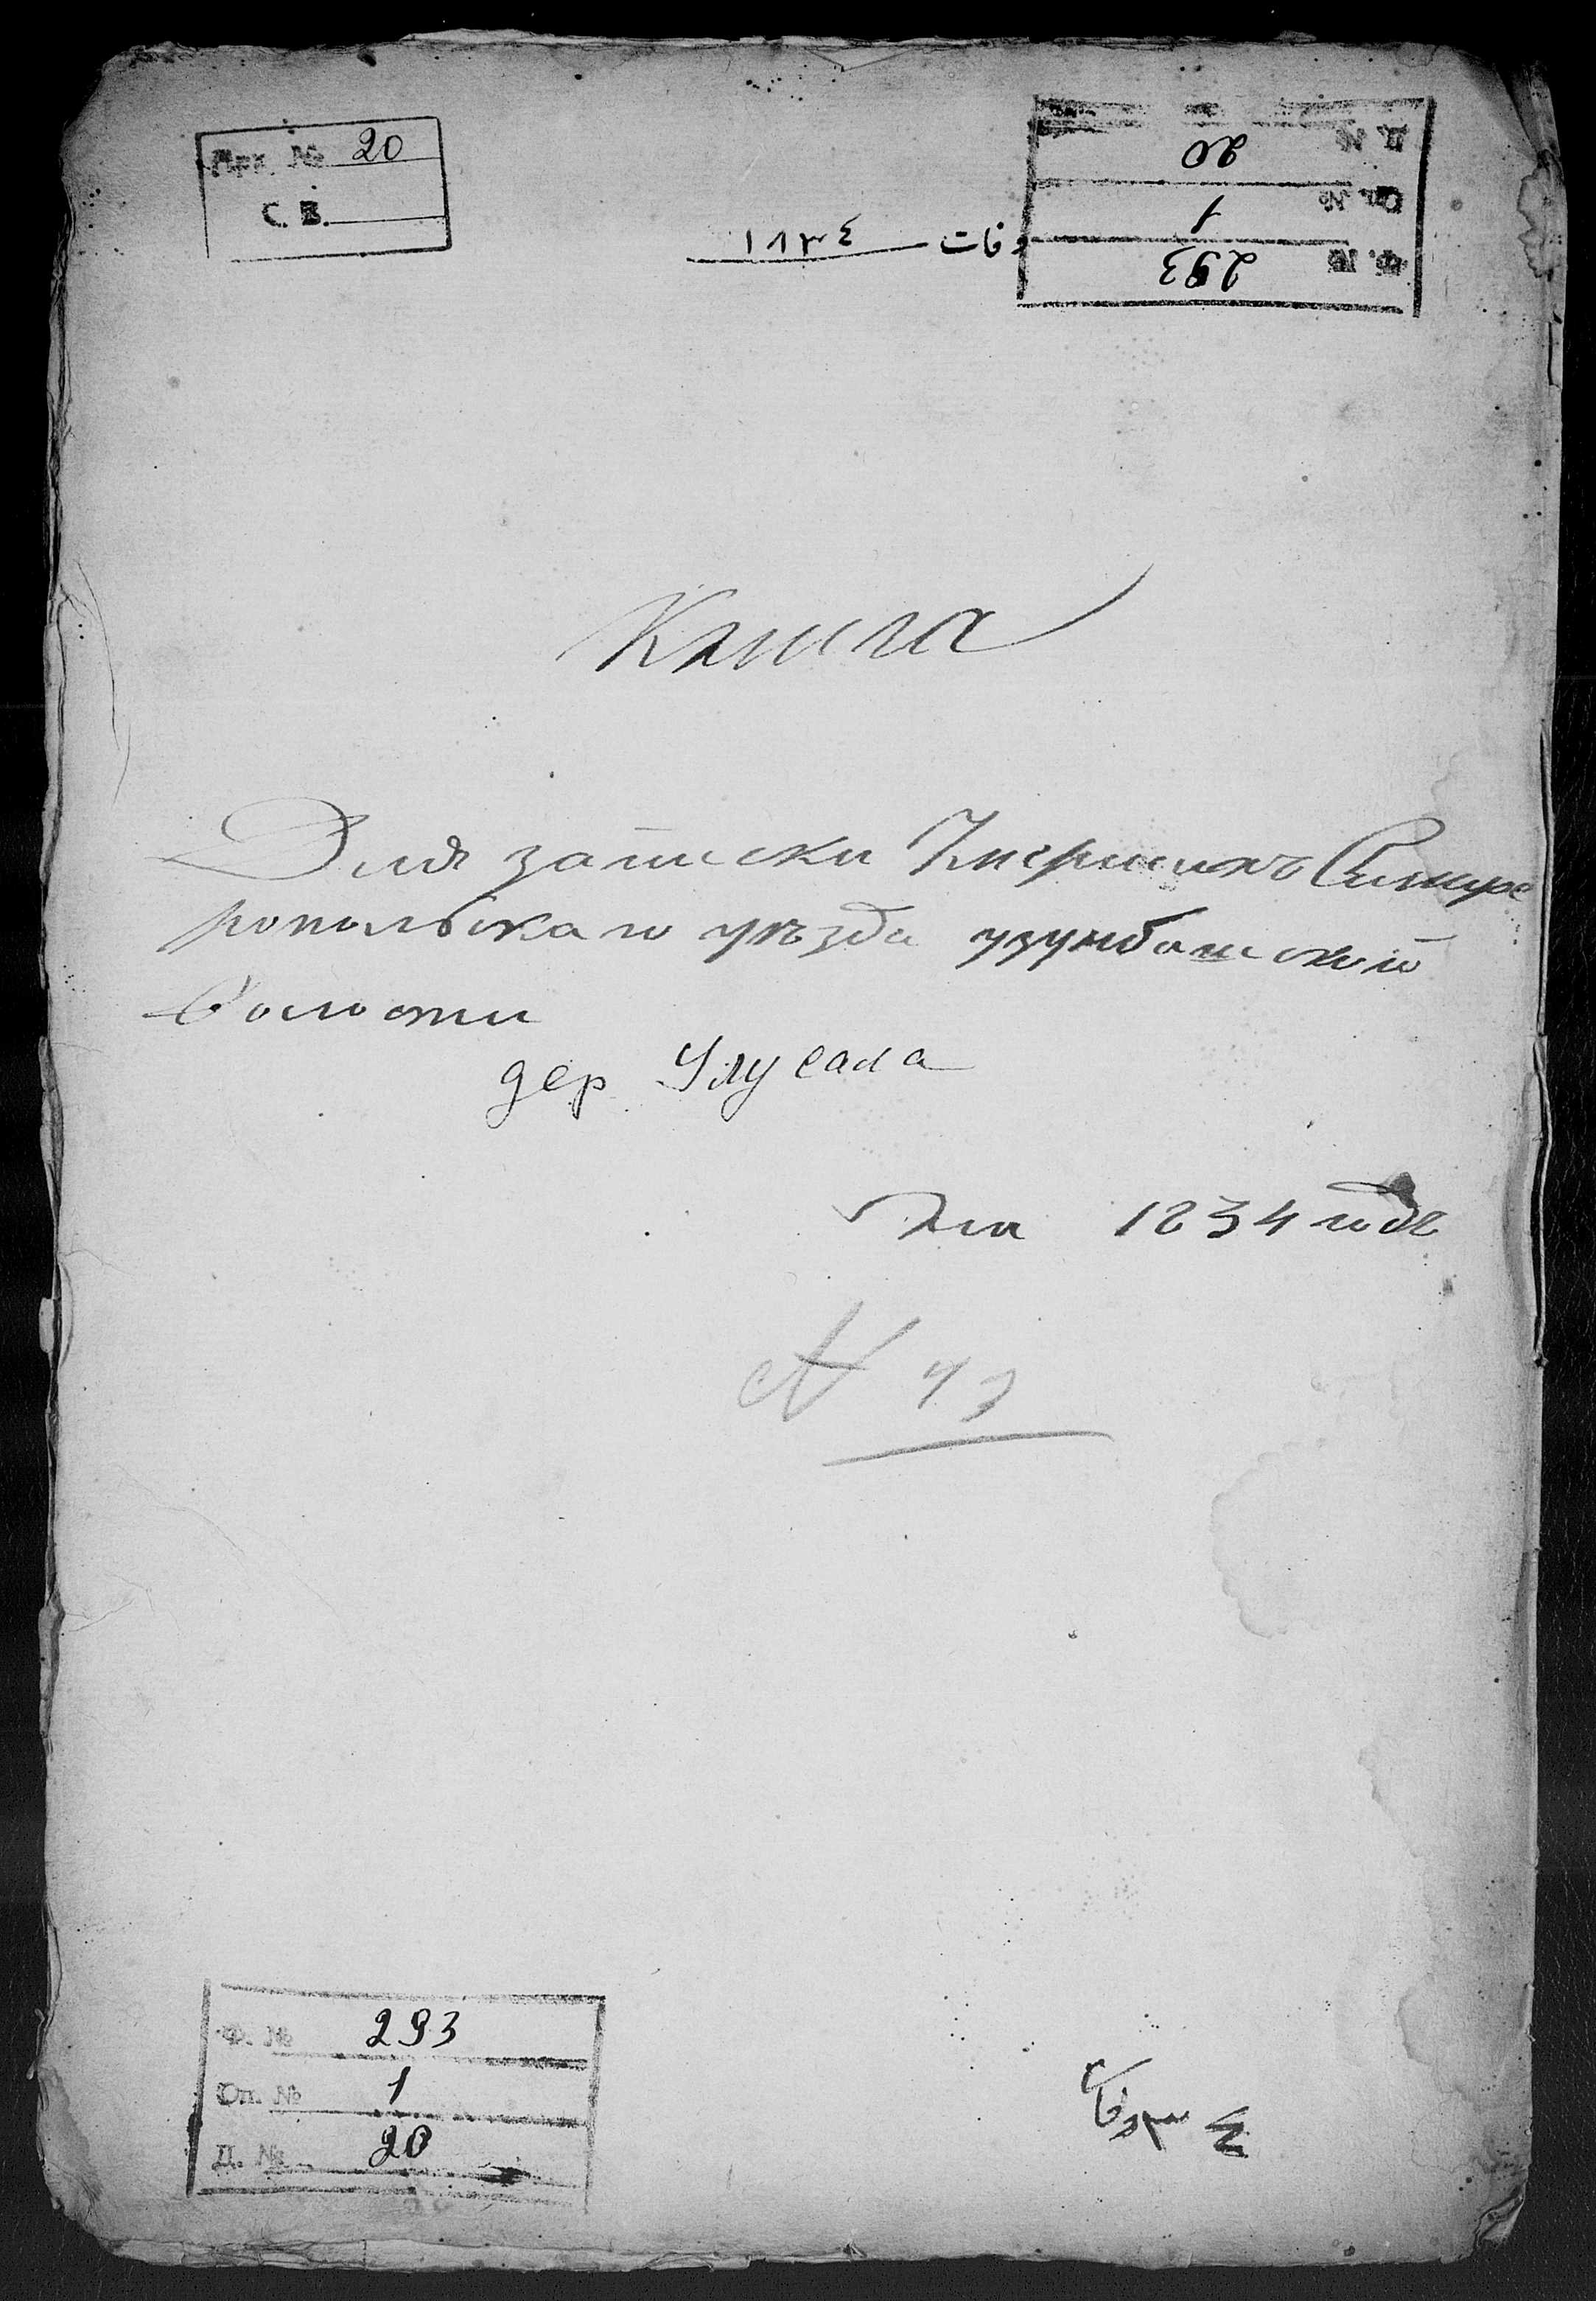 Арх. № 20
С. В.
Д. № 20
Оп. № 1
Ф. № 293
وفات ١٨٣٤
Книга
Для записки Умершихъ Симфе
ропольскаго уѣзда узунбашской
волости
дер. Улусала
На 1834 годъ
№ 43
Ф. № 293
Оп. № 1
Д. № 20
وفات
٣٤